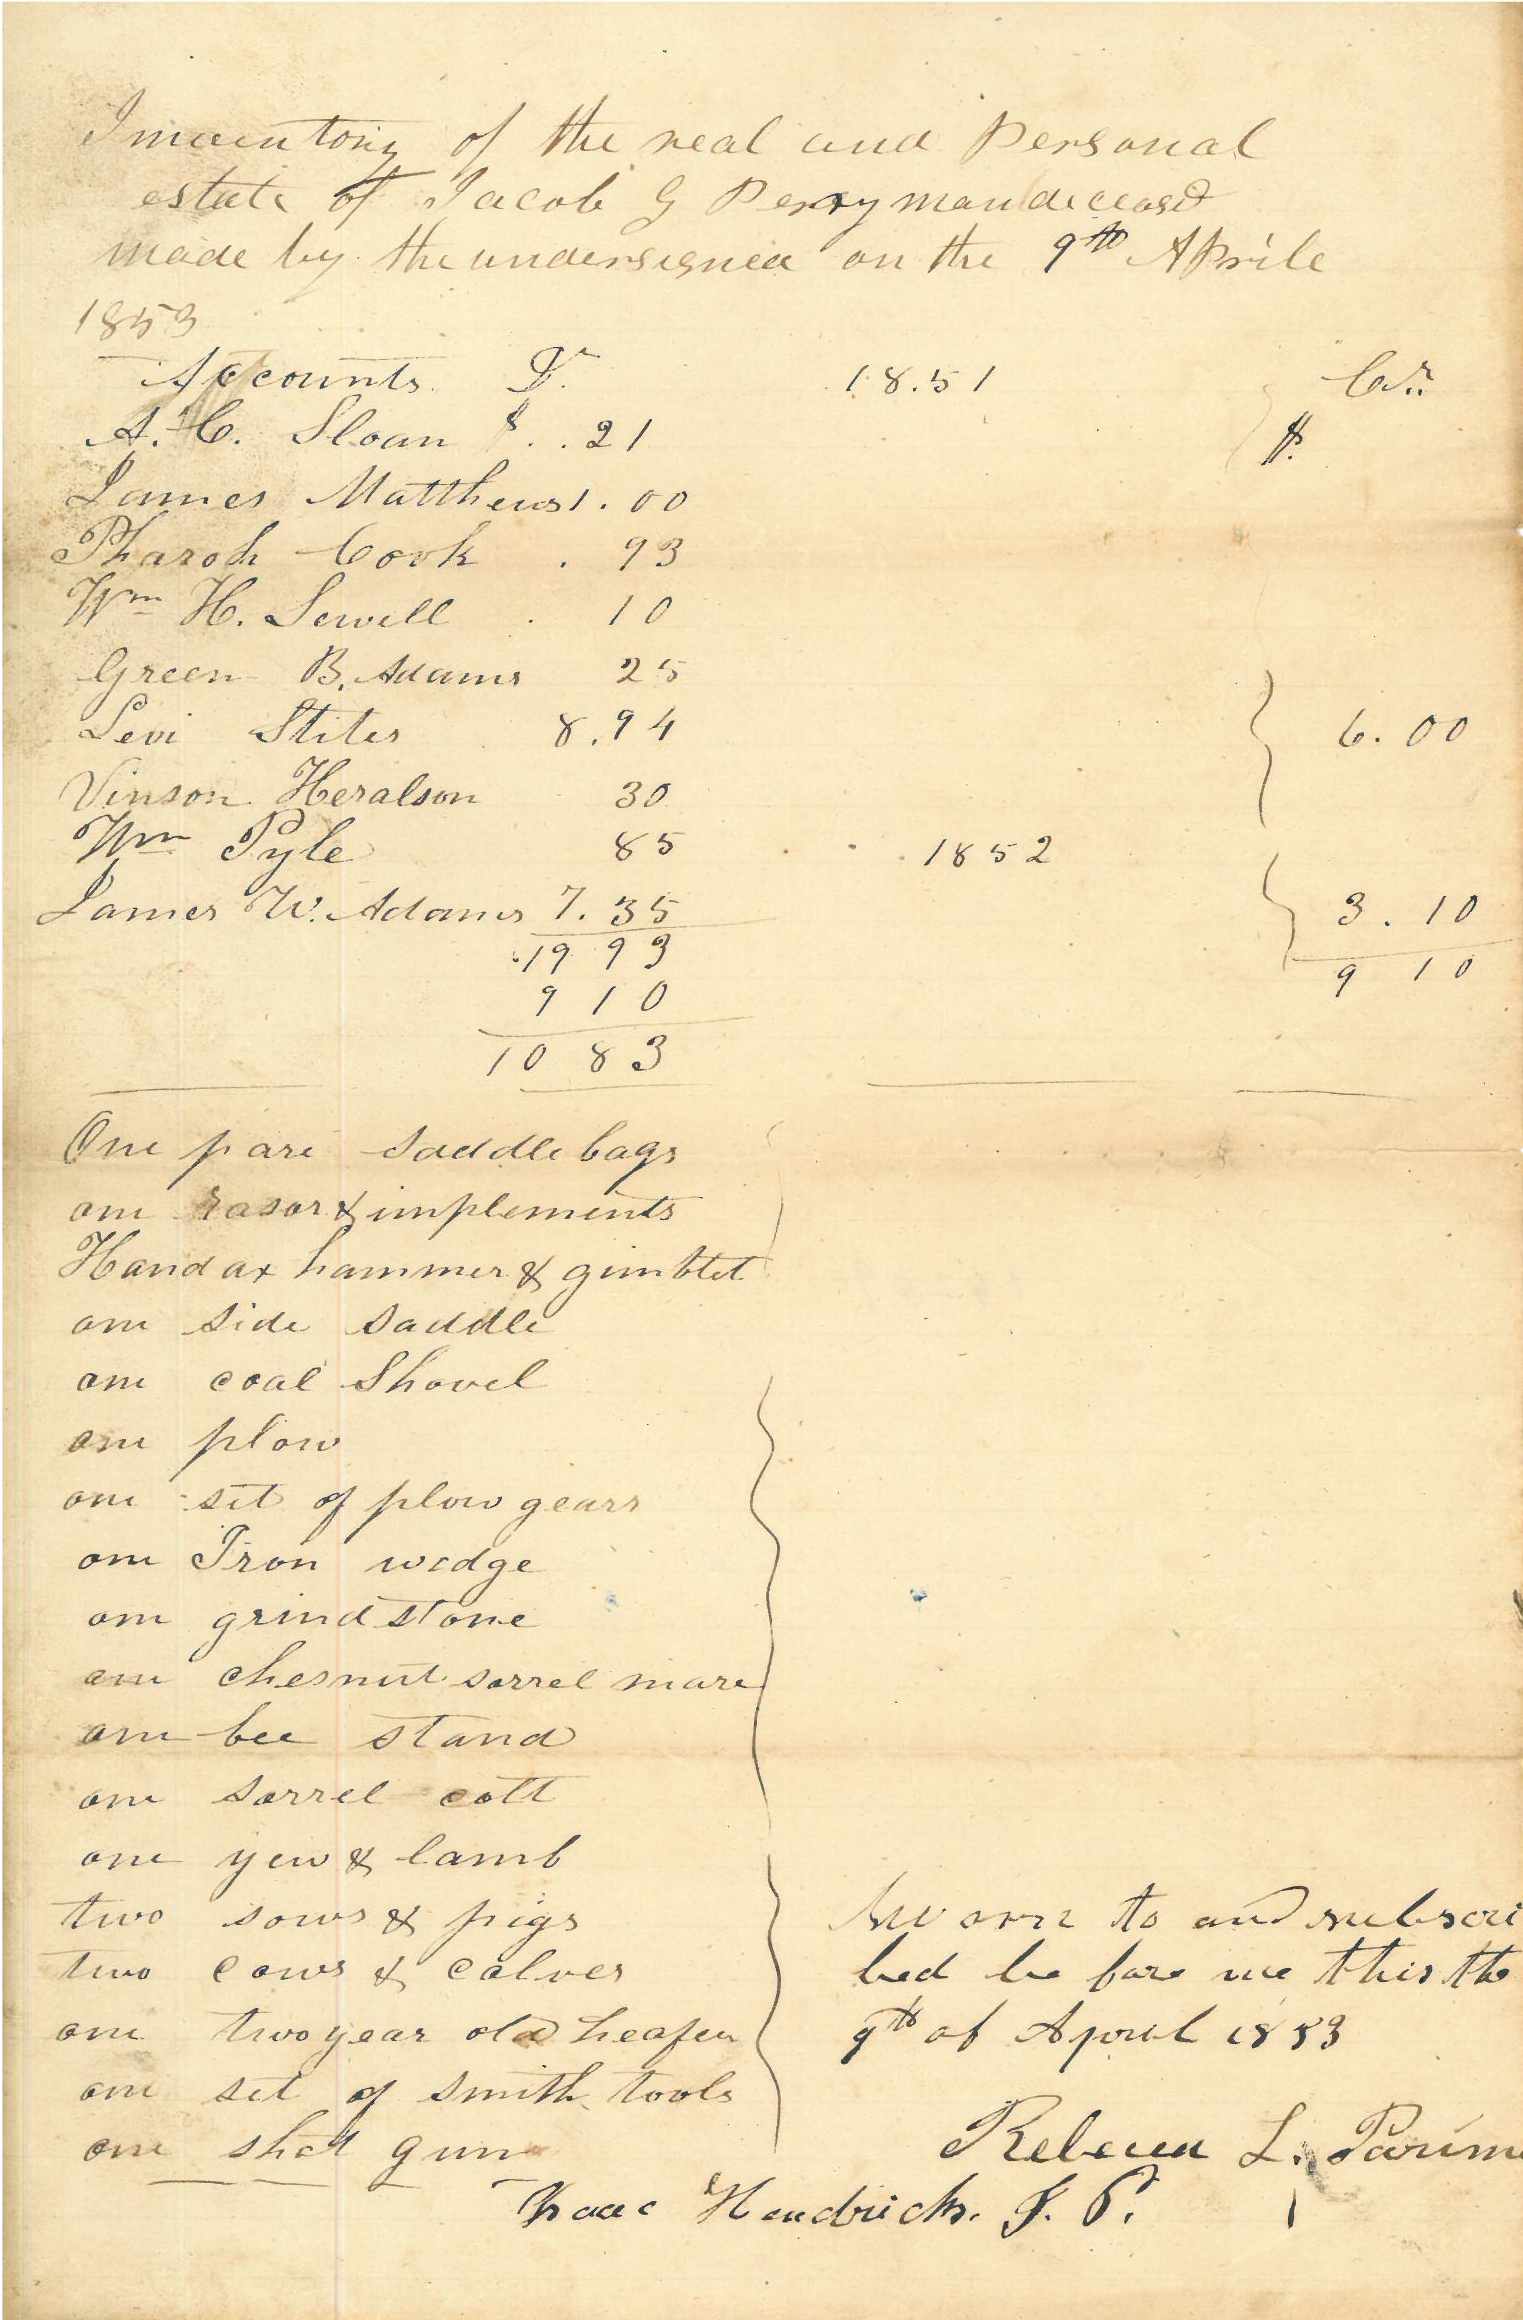 Inventory of the real and Personal
estate of Jacob G Perryman deceasd
made by the undersigned on the 9th Aprile
1853
Accounts Dr. 18.51 Cr.
A. C. Sloan $ . . 21 $.
James Matthews 1.00
Pharoh Cook . 93
Wm H. Sewell . 10
Green B. Adams 25
Levi Stites 8.94 6.00
Vinson Heralson 30
Wm Pyle 85 1852
James W. Adams 7.35 3.10
19 93 9 10
9 10
10 83
One pare saddle bags
one rasor & implements
Hand ax hammer & gimblet
one side saddle
one coal Shovel
one plow
one set of plow gears
one Iron wedge
one grind stone
one chesnut sorrel mare
one bee stand
one sorrel colt
one yew & lamb
two sows & pigs
two cows & calves
one two year old heafer
one set of smith tools
one shot gun
Sworn to and subscri
bed be fore me this the
9th of April 1853
Rebecca L. Parim
Isaac Hendricks. J. P.